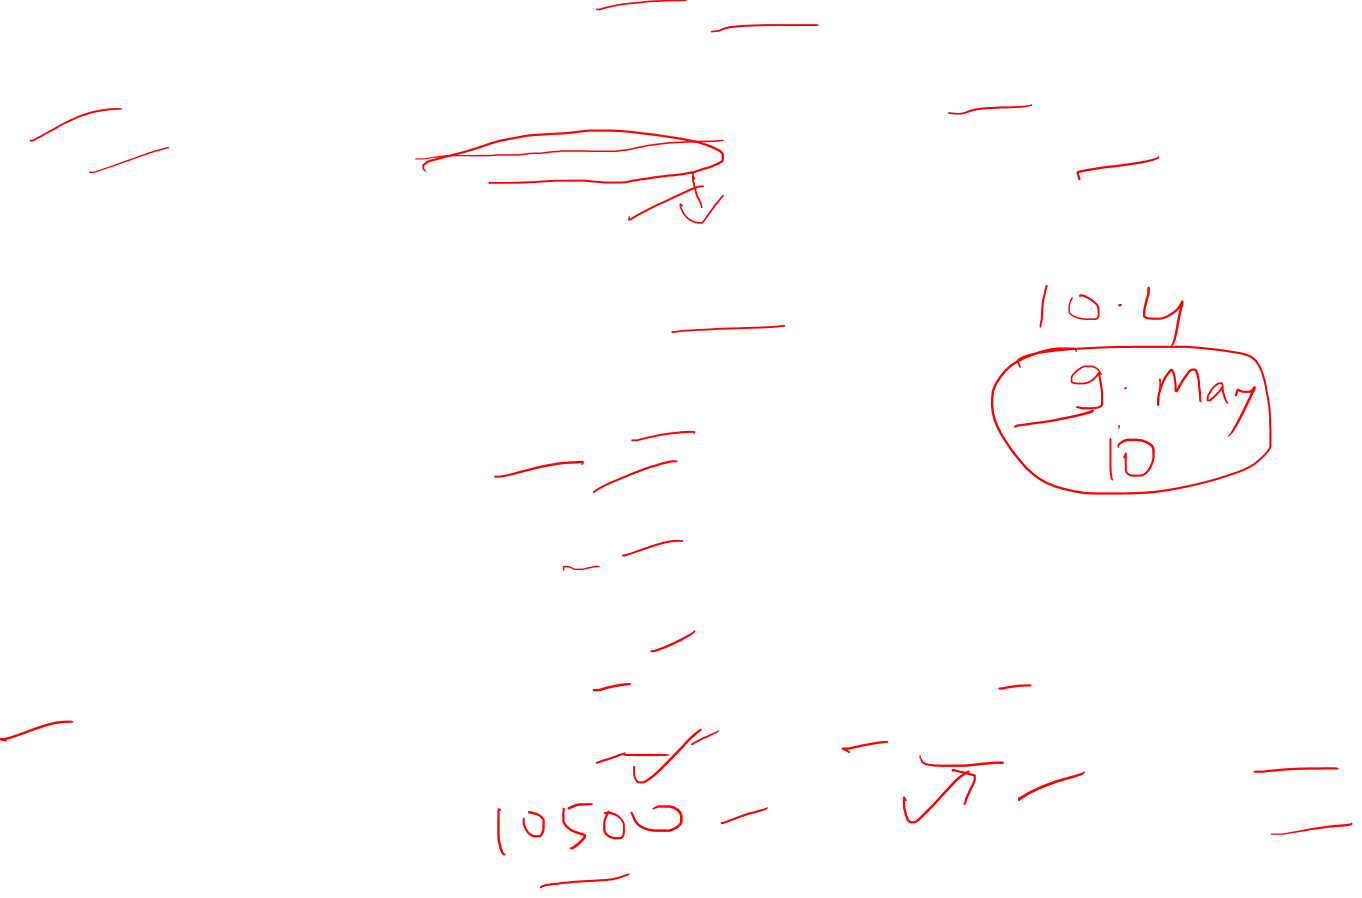 10.4
9. May
10
10500